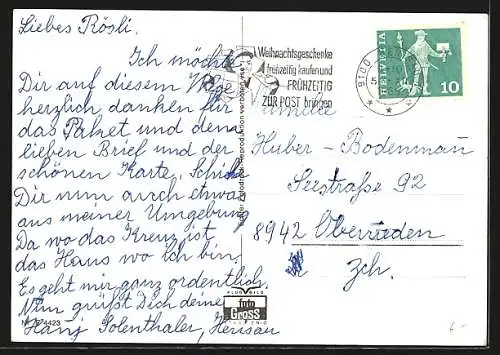 Liebes Rösli.
Ich möchte
Dir auf diesem Wege
herzlich danken für
das Paket und den
lieben Brief und der
schönen Karte, Schike
Dir nun auch etwas
aus meiner Umgebung
Da wo das Kreuz ist
das Haus wo Ich bin.
Es geht mir ganz ordentlich.
Nun grüßt Dich deine
Hans Solenthaler, Herisau
4423
Reproduktion verboten
FLUGBILD
foto
GROSS
Weihnachtsgeschenke
frühzeitig kaufen und
FRÜHZEITIG
ZUR POST bringen
9100
HELVETIA
10
Familie
Huber-Bodenmann
Seestraße 92
8942 Oberrieden
Zch.
6.-